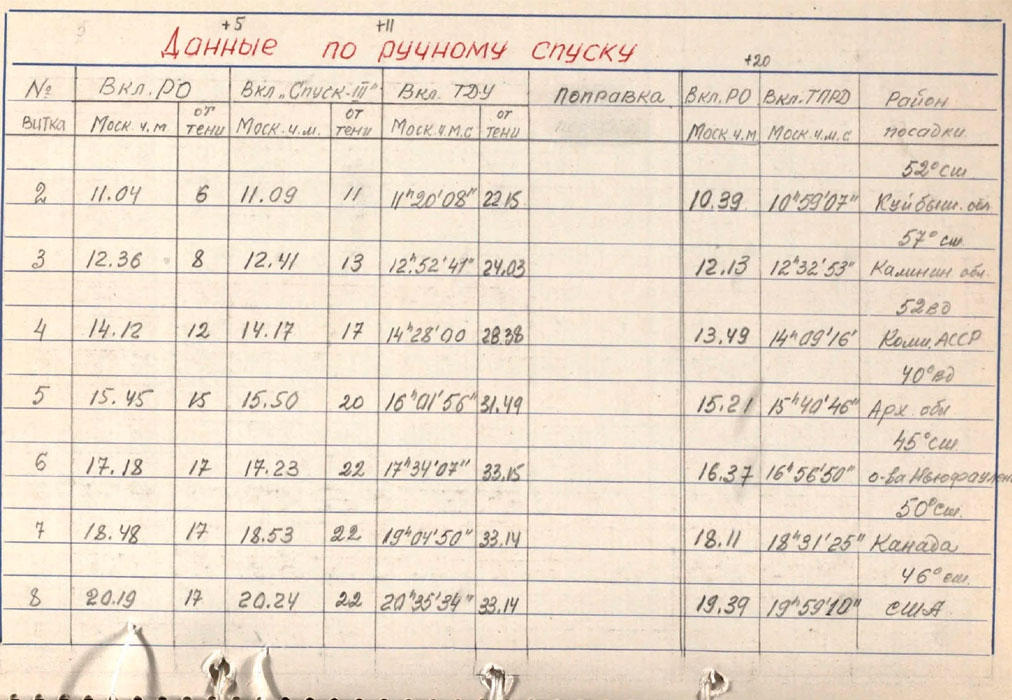 +5 +11
Данные по ручному спуску
+20
№ Вкл. РО Вкл „Спуск-III" Вкл. ТДУ поправка Вкл. РО Вкл. ТПРД Район
витка Моск. ч. м от тени Моск. ч. м. от тени Моск. ч. м. с от тени Моск. ч. м Моск. ч. м. с посадки
52° сш
2 11.04 6 11.09 11 11ʰ20'08" 22.15 10.39 10ʰ59'07" Куйбыш. обл
57° сш
3 12.36 8 12.41 13 12ʰ52'41" 24.03 12.13 12ʰ32'53" Калинин. обл.
52 вд
4 14.12 12 14.17 17 14ʰ28'00 28.38 13.49 14ʰ09'16' Коми. АССР
40° вд
5 15.45 15 15.50 20 16ʰ01'56" 31.49 15.21 15ʰ40'46" Арх. обл
45° сш
6 17.18 17 17.23 22 17ʰ34'07" 33.15 16.37 16ʰ56'50" о-ва Ньюфаундлен
50° сш.
7 18.48 17 18.53 22 19ʰ04'50" 33.14 18.11 18ʰ31'25" Канада
46° сш.
8 20.19 17 20.24 22 20ʰ35'34" 33.14 19.39 19ʰ59'10" США